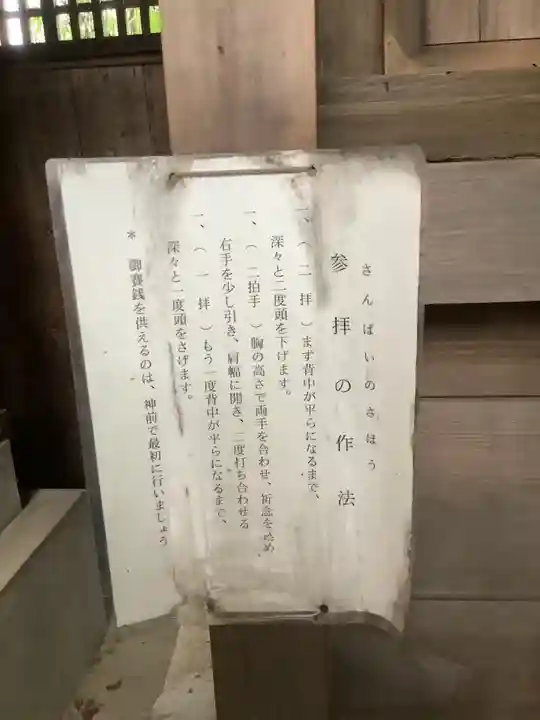 さんぱいのさほう
参拝の作法
一、（二拝）まず背中が平らになるまで、
深々と二度頭を下げます。
一、（二拍手）胸の高さで両手を合わせ、祈念をこめ
右手を少し引き、肩幅に開き、二度打ち合わせる
一、（一拝）もう一度背中が平らになるまで、
深々と一度頭をさげます。
＊御賽銭を供えるのは、神前で最初に行いましょう